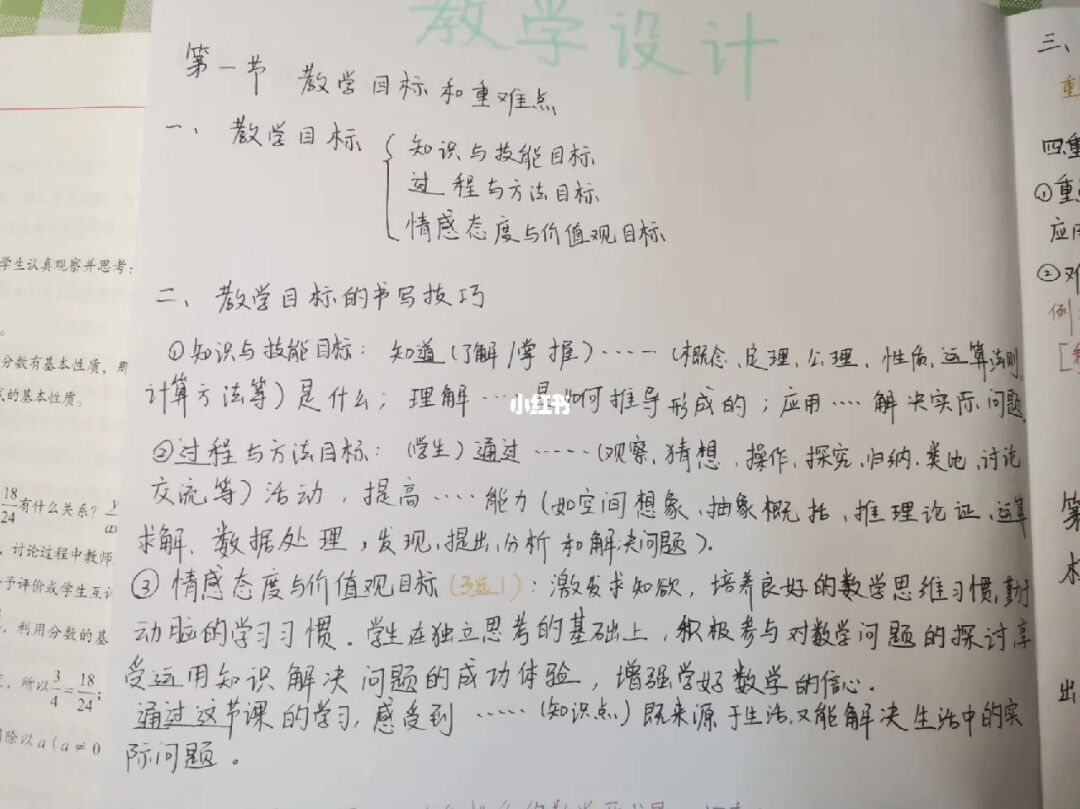 教学设计
第一节 教学目标和重难点
一、教学目标
知识与技能目标
过程与方法目标
情感态度与价值观目标
二、教学目标的书写技巧
①知识与技能目标：知道(了解/掌握)……(概念、定理、公理、性质、运算法则、
计算方法等)是什么；理解……是如何推导形成的；应用……解决实际问题
②过程与方法目标：(学生)通过……(观察、猜想、操作、探究、归纳、类比、讨论
交流等)活动，提高……能力(如空间想象、抽象概括、推理论证、运算
求解、数据处理，发现、提出、分析和解决问题)。
③情感态度与价值观目标(3选1)：激发求知欲，培养良好的数学思维习惯，勤于
动脑的学习习惯。学生在独立思考的基础上，积极参与对数学问题的探讨享
受运用知识解决问题的成功体验，增强学好数学的信心。
通过这节课的学习，感受到……(知识点)既来源于生活，又能解决生活中的实
际问题。
小红书
学生认真观察并思考：
分数有基本性质，那
式的基本性质。
18/24有什么关系？
，讨论过程中教师
予评价或学生互评
，利用分数的基
，所以3/4=18/24；
除以a(a≠0
三、
重
四、重
①重点
应用
②难
例
第
出